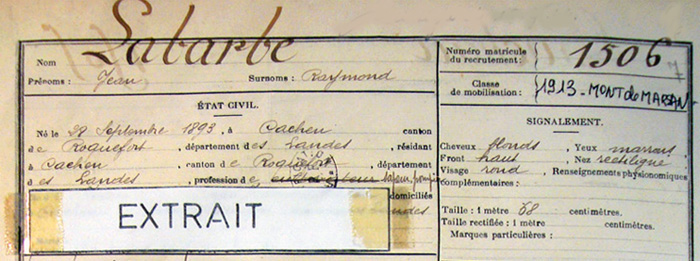 Nom Labarbe
Prénoms : Jean Surnoms : Raymond
ÉTAT CIVIL.
Né le 28 Septembre 1893, à Cachen canton
de Roquefort, département des Landes, résidant
à Cachen, canton de Roquefort, département
des Landes, profession de sapeur pompier
domiciliés
Landes
EXTRAIT
Numéro matricule
du recrutement: 1506
Classe
de mobilisation: 1913 - MONT de MARSAN
SIGNALEMENT.
Cheveux blonds Yeux marrons
Front haut Nez rectiligne
Visage rond Renseignements physionomiques
complémentaires :
Taille : 1 mètre 58 centimètres.
Taille rectifiée : 1 mètre centimètres.
Marques particulières :